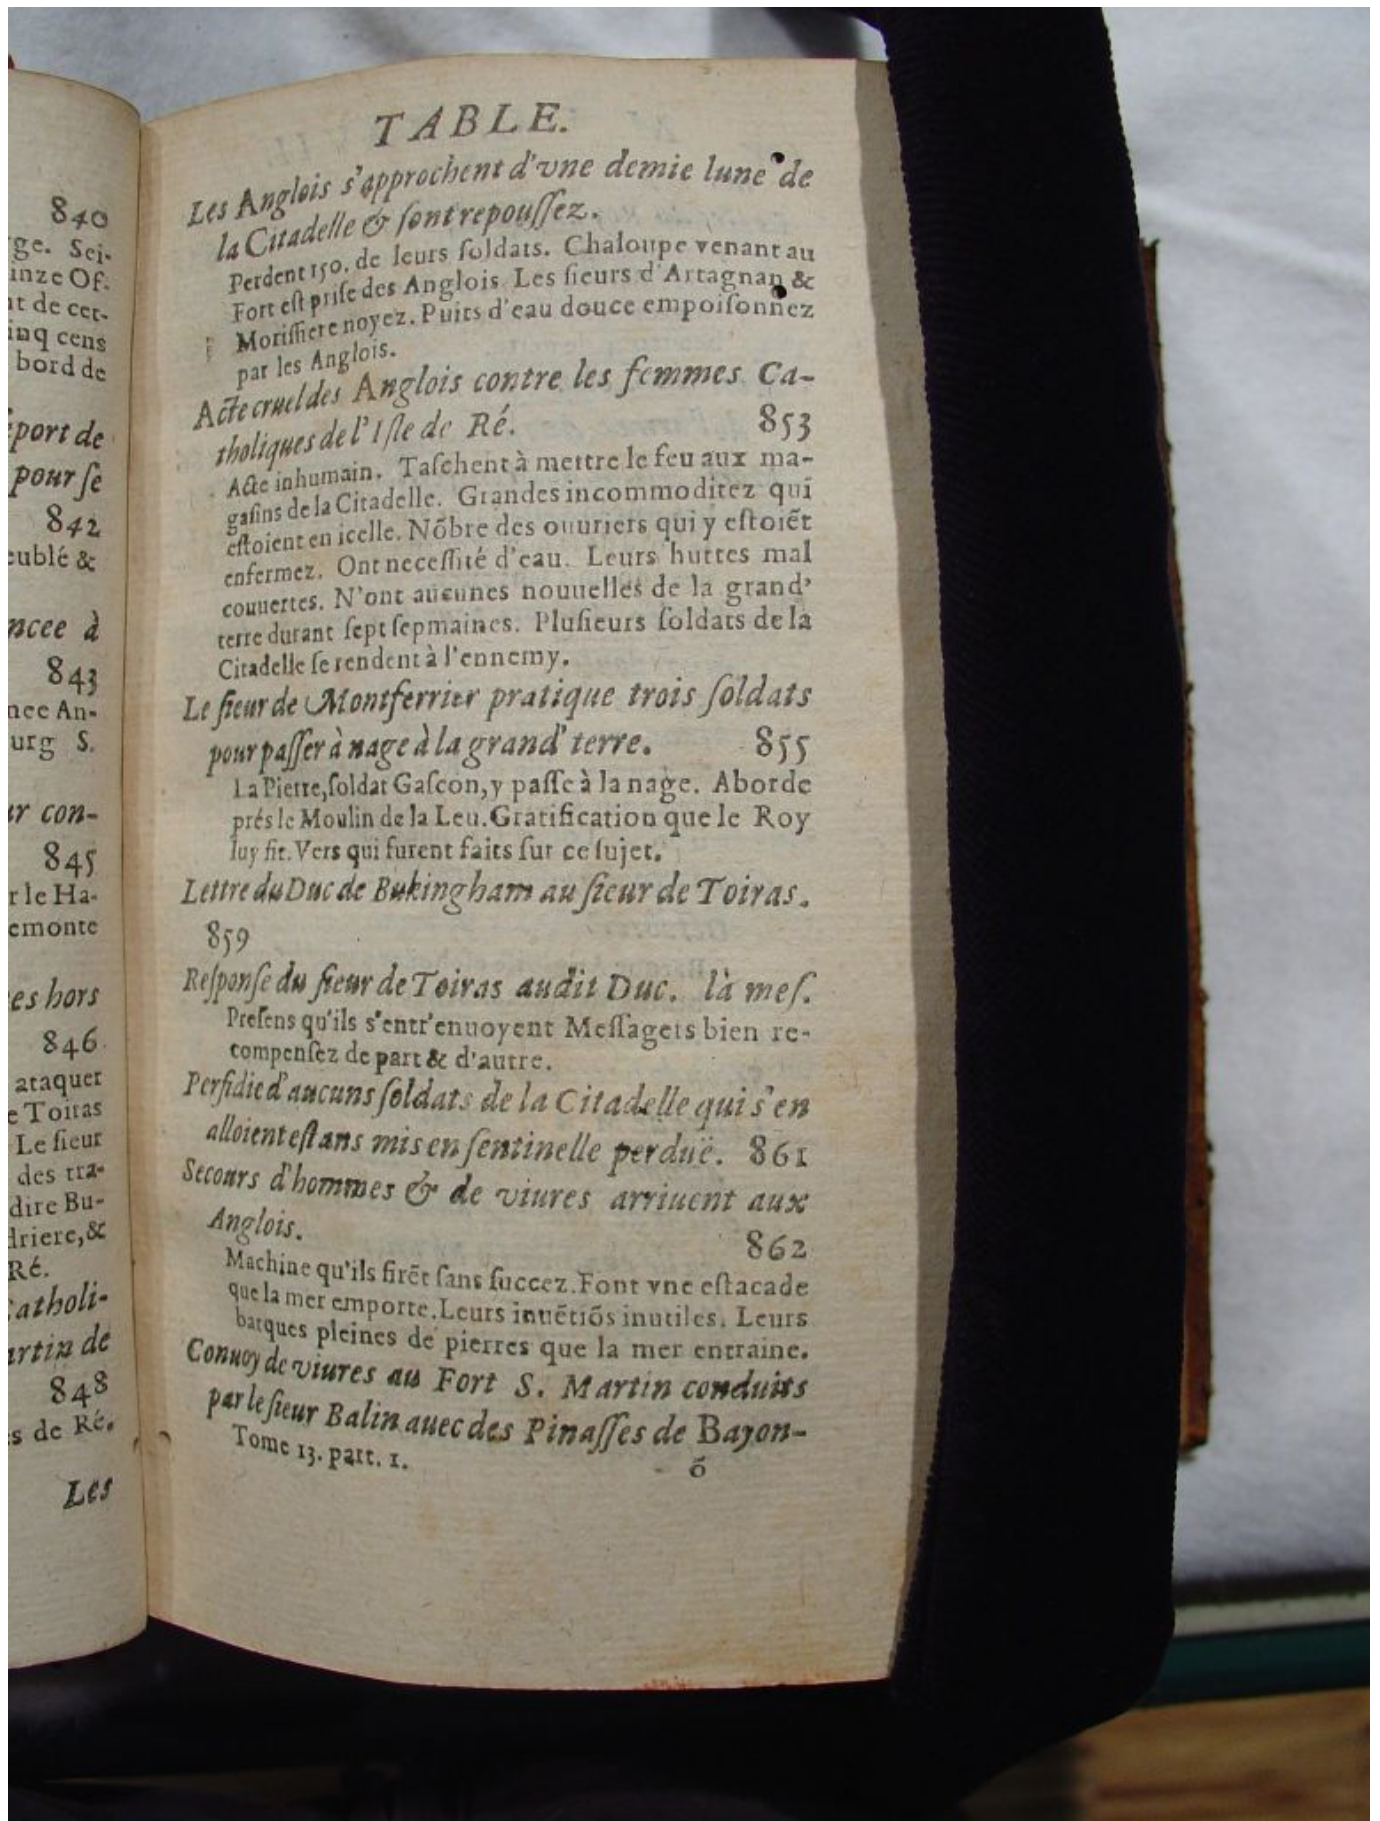 840
ge. Sei-
inze Of-
nt de cer-
inq cens
bord de
port de
pour se
842
eublé &
ncee à
843
nee An-
urg S.
ur con-
845
r le Ha-
emonte
es hors
846
ataquer
e Toiras
Le sieur
des tra-
dire Bu-
driere, &
Ré.
Catholi-
artin de
848
s de Ré.
Les
TABLE.
Les Anglois s'approchent d'vne demie lune de
la Citadelle & sont repoussez.
Perdent 150. de leurs soldats. Chaloupe venant au
Fort est prise des Anglois Les sieurs d'Artagnan &
Morissiere noyez. Puits d'eau douce empoisonnez
par les Anglois.
Acte cruel des Anglois contre les femmes Ca-
tholiques de l'Isle de Ré. 853
Acte inhumain. Taschent à mettre le feu aux ma-
gasins de la Citadelle. Grandes incommoditez qui
estoient en icelle. Nõbre des ouuriers qui y estoiẽt
enfermez. Ont necessité d'eau. Leurs huttes mal
couuertes. N'ont aucunes nouuelles de la grand'
terre durant sept sepmaines. Plusieurs soldats de la
Citadelle se rendent à l'ennemy.
Le sieur de Montferrier pratique trois soldats
pour passer à nage à la grand' terre. 855
La Pierre, soldat Gascon, y passe à la nage. Aborde
prés le Moulin de la Leu. Gratification que le Roy
luy fit. Vers qui furent faits sur ce sujet.
Lettre du Duc de Bukingham au sieur de Toiras.
859
Response du sieur de Toiras audit Duc. là mes.
Presens qu'ils s'entr'enuoyent Messagers bien re-
compensez de part & d'autre.
Perfidie d'aucuns soldats de la Citadelle qui s'en
alloient estans mis en sentinelle perduë. 861
Secours d'hommes & de viures arriuent aux
Anglois. 862
Machine qu'ils firẽt sans succez. Font vne estacade
que la mer emporte. Leurs inuẽtiõs inutiles. Leurs
barques pleines de pierres que la mer entraine.
Conuoy de viures au Fort S. Martin conduits
par le sieur Balin auec des Pinasses de Bayon-
Tome 13. part. 1. õ